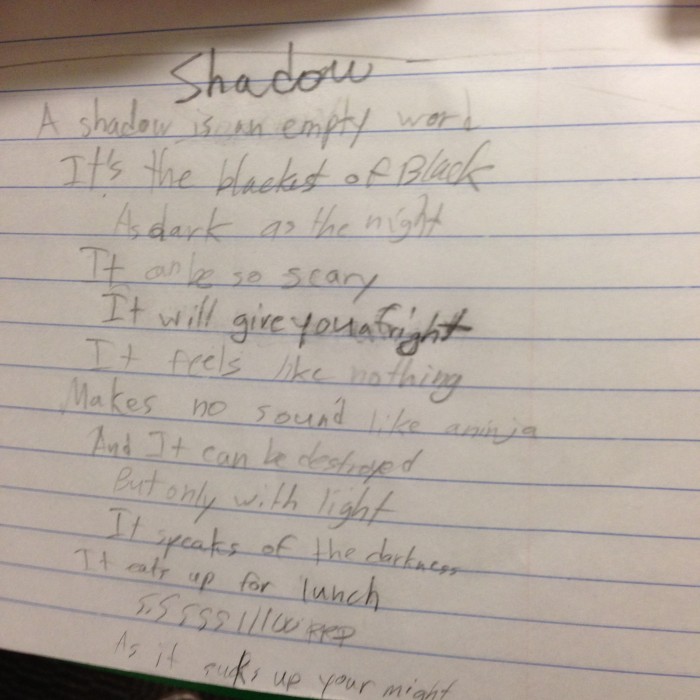 Shadow
A shadow is an empty word
It's the blackest of Black
As dark as the night
It can be so scary
It will give you a fright
It feels like nothing
Makes no sound like a ninja
And It can be destroyed
But only with light
It speaks of the darkness
It eats up for lunch
SSSSSlllluurrp
As it sucks up your might